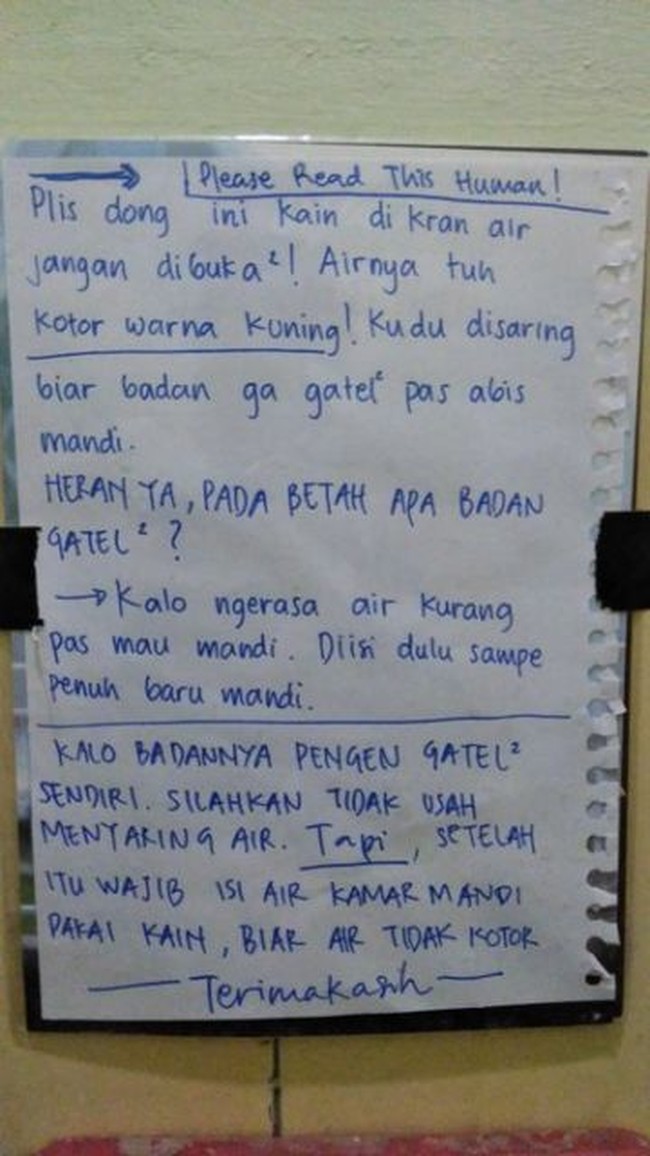 → Please Read This Human!
Plis dong ini kain di kran air
jangan dibuka²! Airnya tuh
kotor warna kuning! Kudu disaring
biar badan ga gatel² pas abis
mandi.
HERAN YA, PADA BETAH APA BADAN
GATEL² ?
→ Kalo ngerasa air kurang
pas mau mandi. Diisi dulu sampe
penuh baru mandi.
KALO BADANNYA PENGEN GATEL²
SENDIRI. SILAHKAN TIDAK USAH
MENYARING AIR. Tapi, SETELAH
ITU WAJIB ISI AIR KAMAR MANDI
PAKAI KAIN, BIAR AIR TIDAK KOTOR
— Terimakasih —